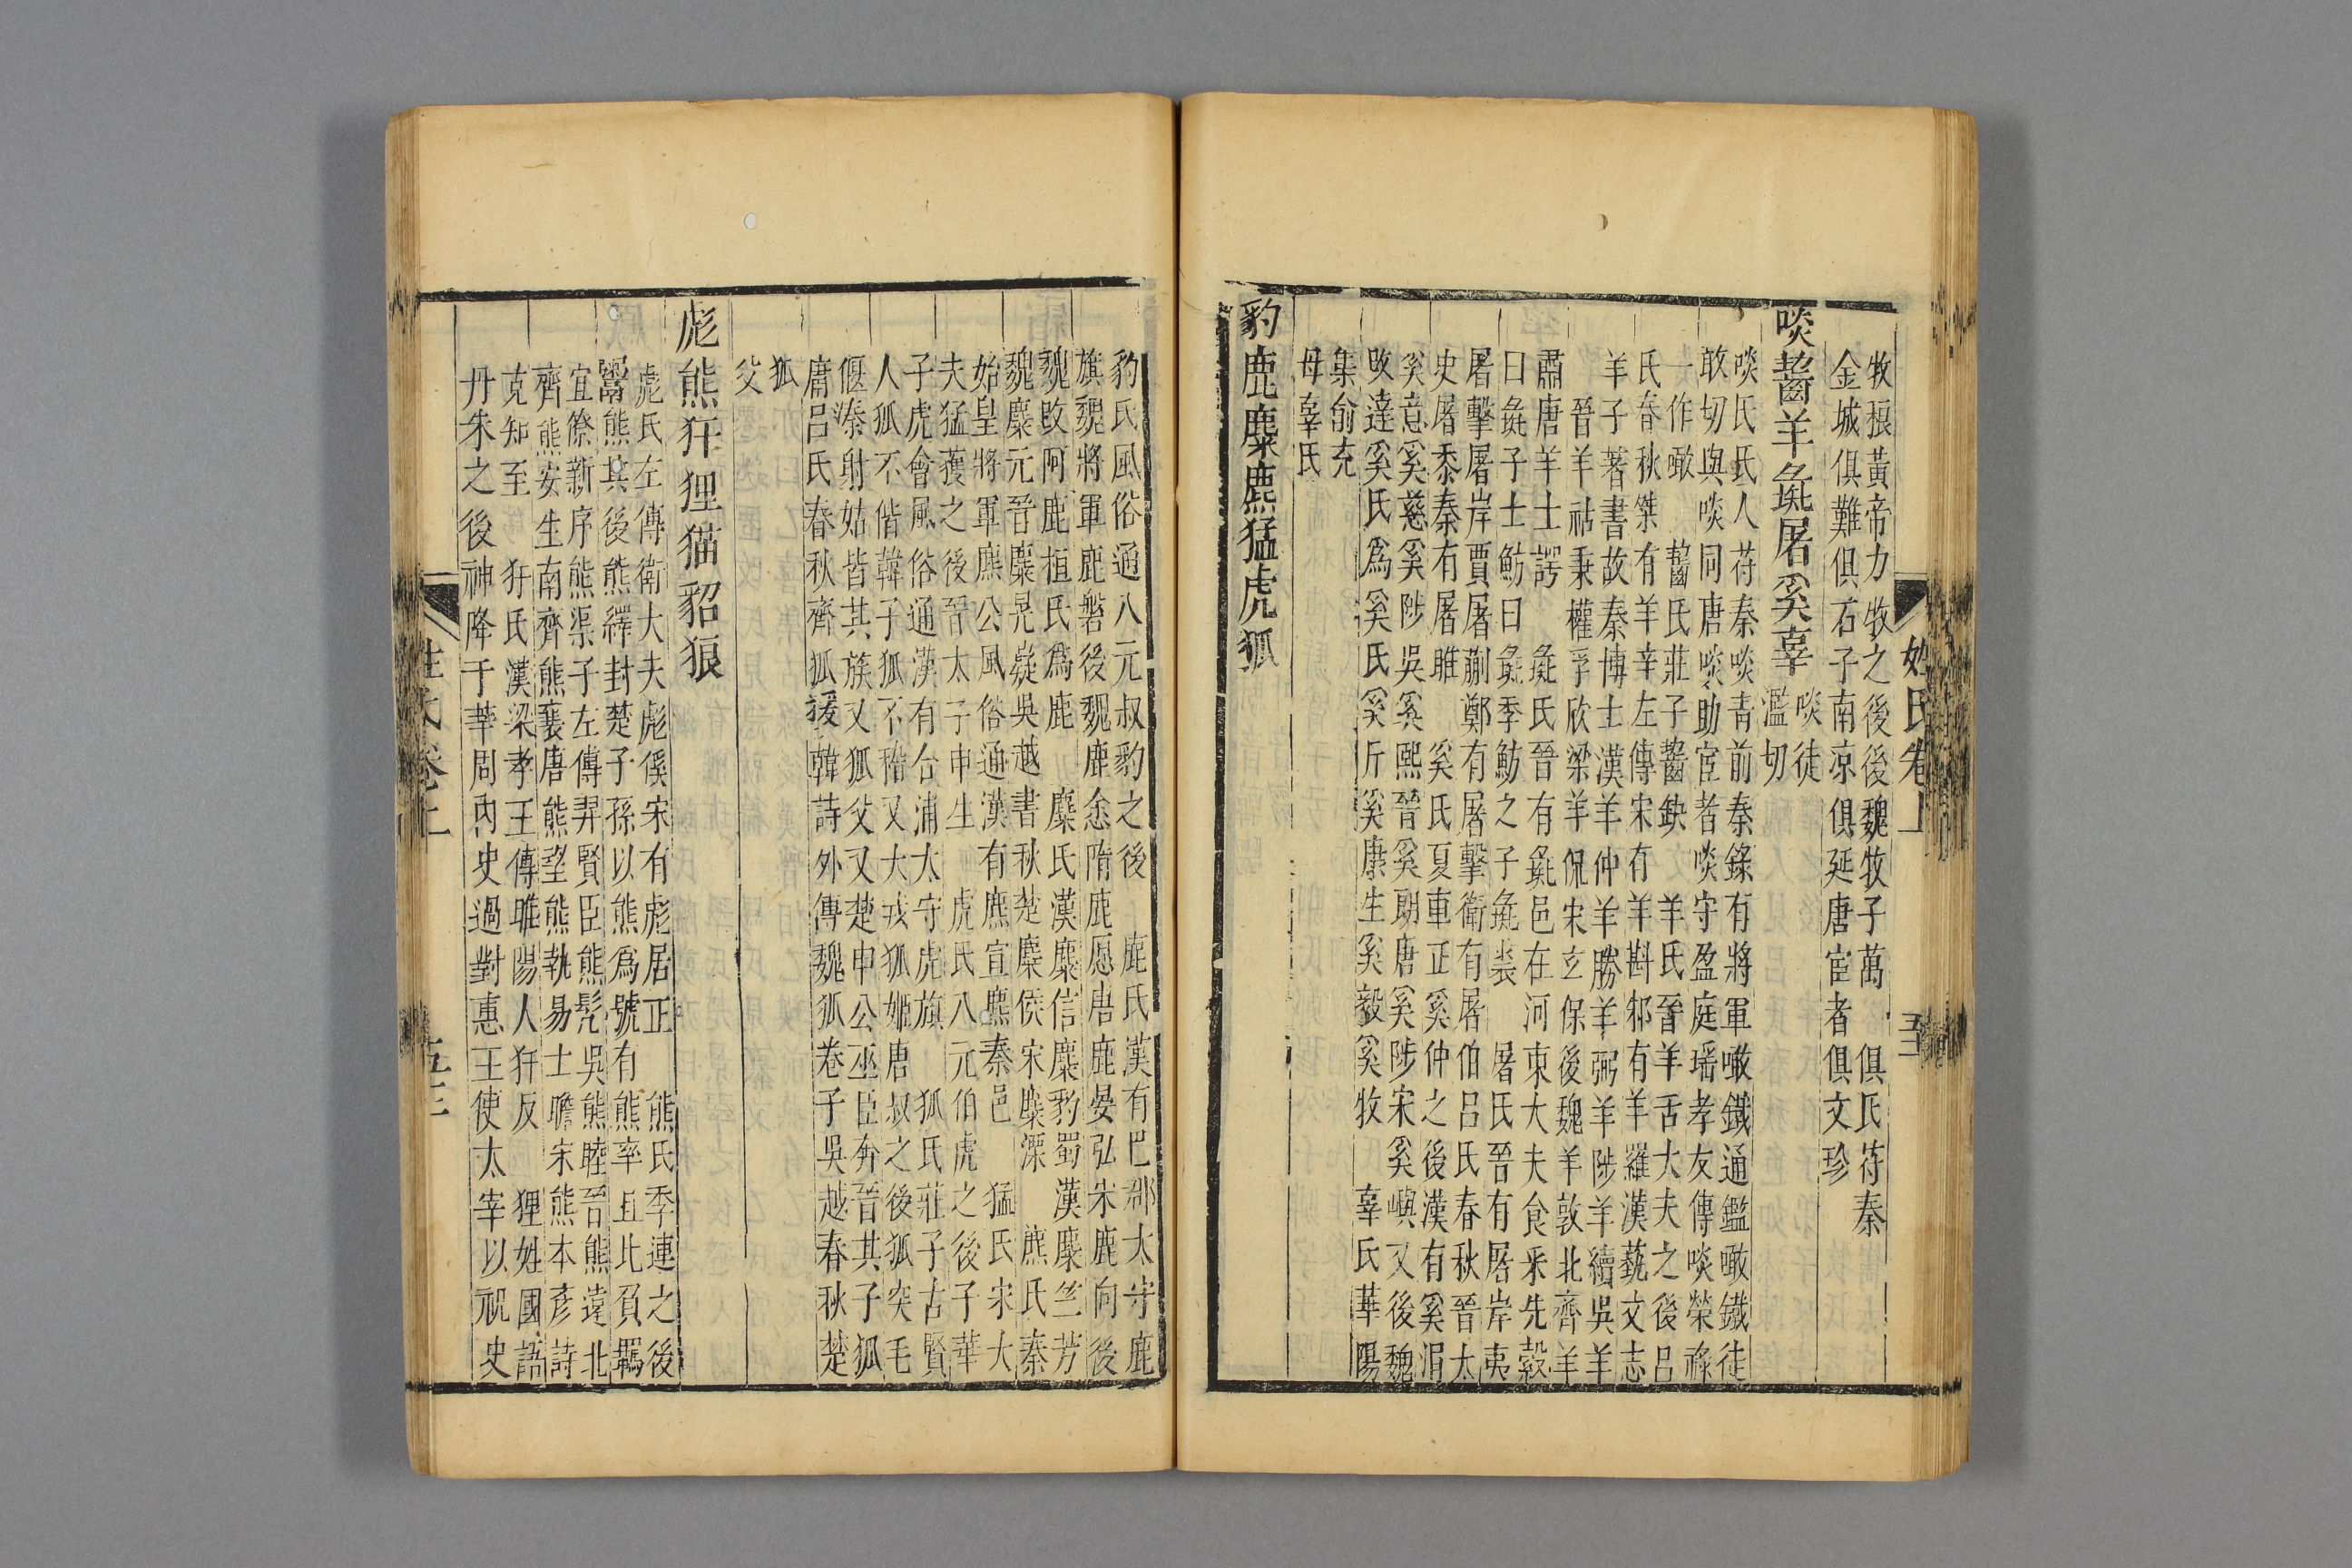 姓氏卷上
牧狼黃帝力牧之後後魏牧子萬 俱氏苻秦
金城俱難俱石子南涼俱延唐宦者俱文珍
啖齧羊彘屠奚辜
啖徒
濫切
啖氏氏人苻秦啖青前秦錄有將軍噉鐵通鑑噉鐵徒
敢切與啖同唐啖助宦者啖守盈庭瑶孝友傳啖榮祿
一作噉 齧氏莊子齧缺 羊氏晉羊舌大夫之後呂
氏春秋桀有羊辛左傳宋有羊斟邾有羊羅漢藝文志
羊子著書故秦博士漢羊仲羊勝羊弼羊陟羊續吳羊
晉羊祜秉權孚欣梁羊侃宋玄保後魏羊敦北齊羊
肅唐羊士諤 彘氏晉有彘邑在河東大夫食釆先縠
曰彘子士魴曰彘季魴之子彘裘 屠氏晉有屠岸夷
屠擊屠岸賈屠蒯鄭有屠擊衛有屠伯呂氏春秋晉太
史屠黍秦有屠睢 奚氏夏車正奚仲之後漢有奚涓
奚意奚慈奚陟吳奚熙晉奚朗唐奚陟宋奚嶼又後魏
改達奚氏為奚氏奚斤奚康生奚毅奚牧 辜氏華陽
集俞充
母辜氏
豹鹿麋麃猛虎狐
豹氏風俗通八元叔豹之後 鹿氏漢有巴郡太守鹿
旗魏將軍鹿磐後魏鹿悆隋鹿愿唐鹿晏弘宋鹿向後
魏改阿鹿桓氏為鹿 麋氏漢麋信麋豹蜀漢麋竺芳
魏麋元晉麋晃嶷吳越書秋楚麋侯宋麋溧 麃氏秦
始皇將軍麃公風俗通漢有麃宣麃秦邑 猛氏宋大
夫猛獲之後晉太子申生 虎氏八元伯虎之後子華
子虎會風俗通漢有合浦太守虎旗 狐氏莊子古賢
人狐不偕韓子狐不稽又大戎狐姬唐叔之後狐突毛
偃溱射姑皆其族又狐父又楚申公巫臣奔晉其子狐
庸呂氏春秋齊狐援韓詩外傳魏狐卷子吳越春秋楚
狐
父
彪熊犴狸猫貂狼
彪氏左傳衛大夫彪傒宋有彪居正 熊氏季連之後
鬻熊其後熊繹封楚子孫以熊為號有熊率且比負羈
宜僚新序熊渠子左傳羿賢臣熊髡吳熊睦晉熊遠北
齊熊安生南齊熊襄唐熊望熊執易士瞻宋熊本彥詩
克知至 犴氏漢梁孝王傳睢陽人犴反 狸姓國語
丹朱之後神降于莘周內史過對惠王使太宰以祝史